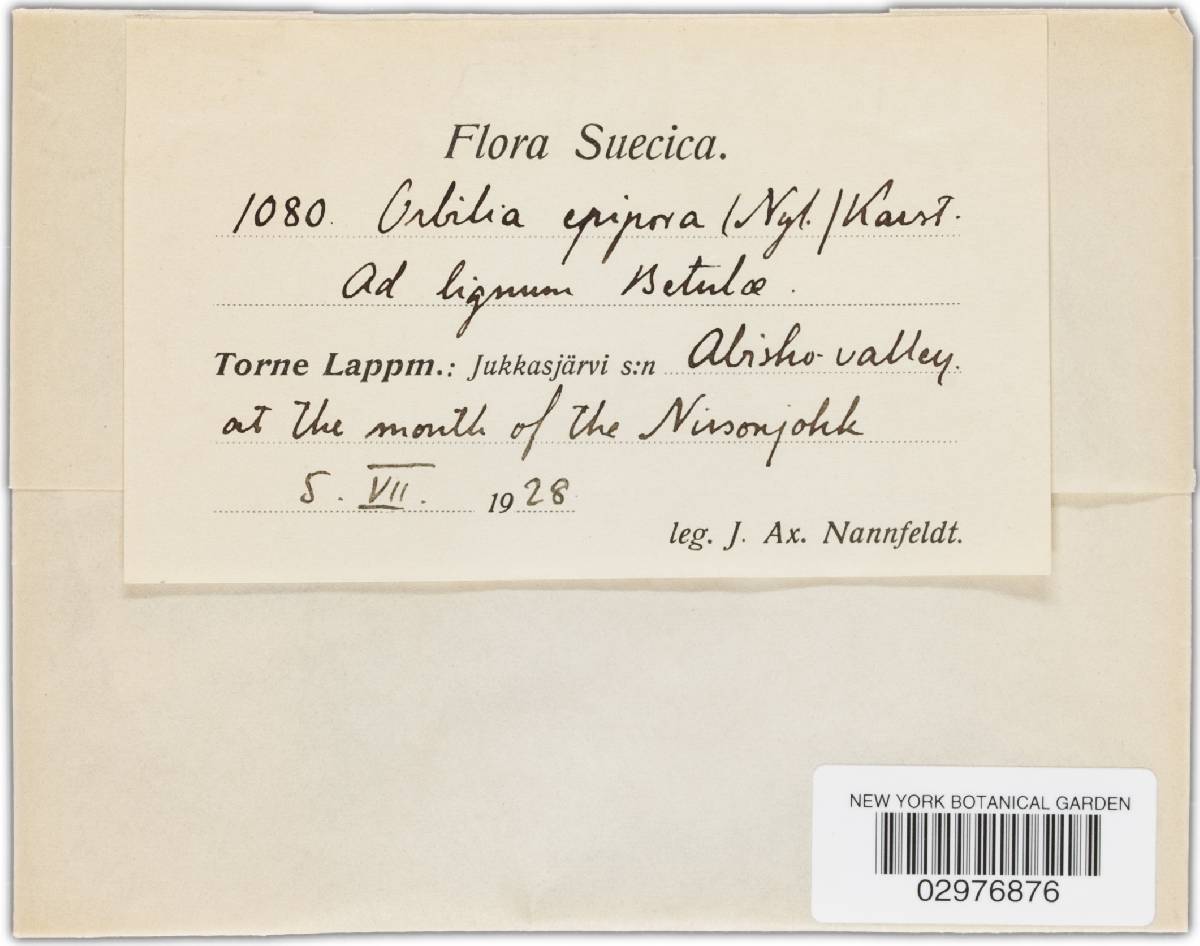 Flora Suecica.
1080. Orbilia epipora (Nyl.) Karst.
Ad lignum Betulæ.
Torne Lappm.: Jukkasjärvi s:n Abisko-valley.
at the mouth of the Nissonjokk
5. VII. 1928
leg. J. Ax. Nannfeldt.
NEW YORK BOTANICAL GARDEN
02976876